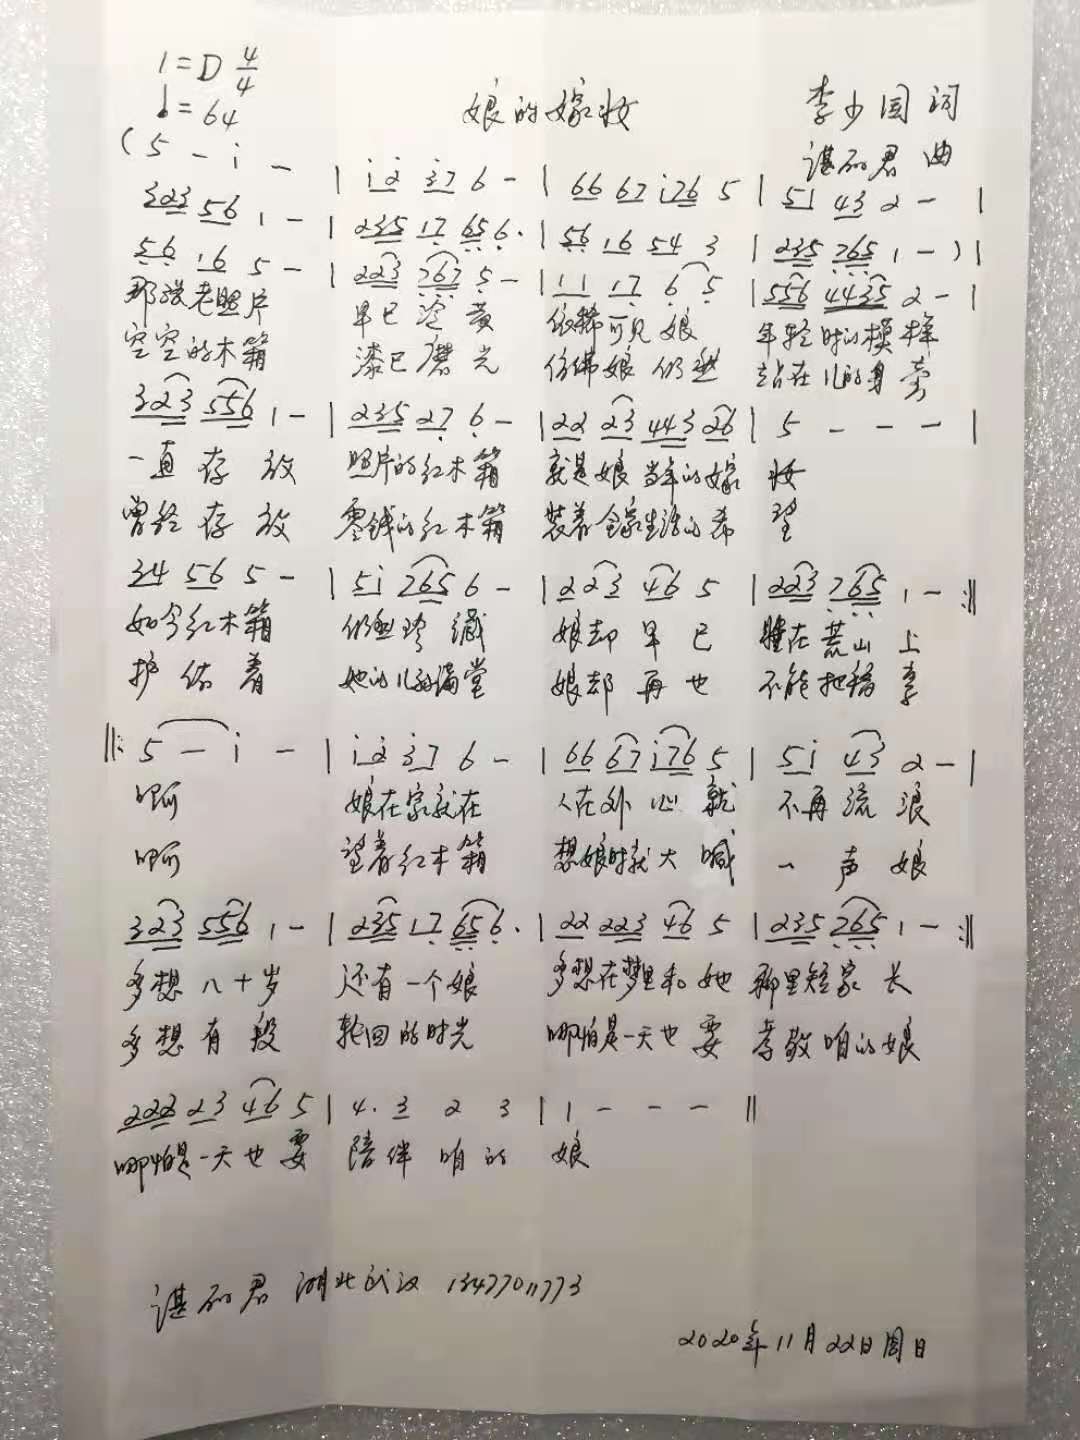 1=D 4/4
♩=64
娘的嫁妆
李少国 词
谌 君 曲
(5 - i - | i2 37 6 - | 66 67 i76 5 | 5i 43 2 - |
323 56 1 - | 235 17 656· | 56 16 54 3 | 235 765 1 - )|
56 16 5 - | 223 767 5 - | 11 17 6 5 | 556 4435 2 - |
那张老照片 早已泛黄 依稀可见娘 年轻时的模样
空空的木箱 漆已磨光 仿佛娘仍然 站在儿的身旁
323 556 1 - | 235 27 6 - | 22 23 443 26 | 5 - - - |
一直存放 照片的红木箱 就是娘当年的嫁 妆
曾经存放 零钱的红木箱 装着全家生活的希 望
34 56 5 - | 5i 765 6 - | 2 23 46 5 | 223 765 1 - :||
如今红木箱 仍然珍藏 娘却早已 睡在荒山上
护佑着 她的儿孙满堂 娘却再也 不能把福享
||: 5 - i - | i2 37 6 - | 66 67 i76 5 | 5i 43 2 - |
啊 娘在家就在 人在外心就 不再流浪
啊 望着红木箱 想娘时就大喊 一声娘
323 556 1 - | 235 17 656· | 22 223 46 5 | 235 765 1 - :||
多想八十岁 还有一个娘 多想在梦里和她 聊里短家长
多想有段 轮回的时光 哪怕是一天也要 孝敬咱的娘
222 23 46 5 | 4· 3 2 3 | 1 - - - ||
哪怕是一天也要 陪伴咱的 娘
谌 君 湖北武汉 13477011773
2020年11月22日周日